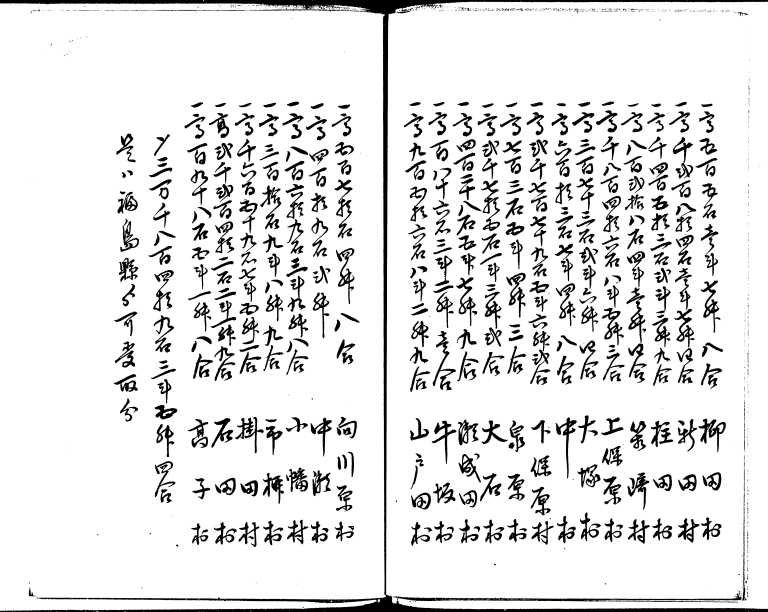 一高五百五石壱斗七舛八合 柳田村
一高千弐百八拾四石壱斗七舛四合 新田村
一高千四百五拾三石弐斗三舛九合 柱田村
一高八百弐拾八石四斗壱舛四合 簗崎村
一高千八百四拾六石八斗五舛三合 上保原村
一高三百七十三石弐斗六舛四合 大塚村
一高六百拾三石七斗四舛八合 中村
一高弐千七百七十九石五斗六舛弐合 下保原村
一高七百三石五斗四舛三合 泉原村
一高弐千七拾五石一斗三舛弐合 大石村
一高四百二十八石五斗七舛九合 瀬成田村
一高百八十六石三斗二舛壱合 牛坂村
一高九百五拾六石八斗二舛九合 山戸田村
一高五百七拾石四舛八合 向川原村
一高四百拾九石弐舛 中瀬村
一高八百六拾九石三斗九舛八合 小幡村
一高三百拾石九斗八舛九合 市柳村
一高千六百五十九石七斗五舛二合 掛田村
一高弐千弐百四拾二石二斗一舛九合 石田村
一高百九十八石五斗一舛八合 高子村
〆三万千八百四拾九石三斗五舛四合
是ハ福島縣ゟ可受取分